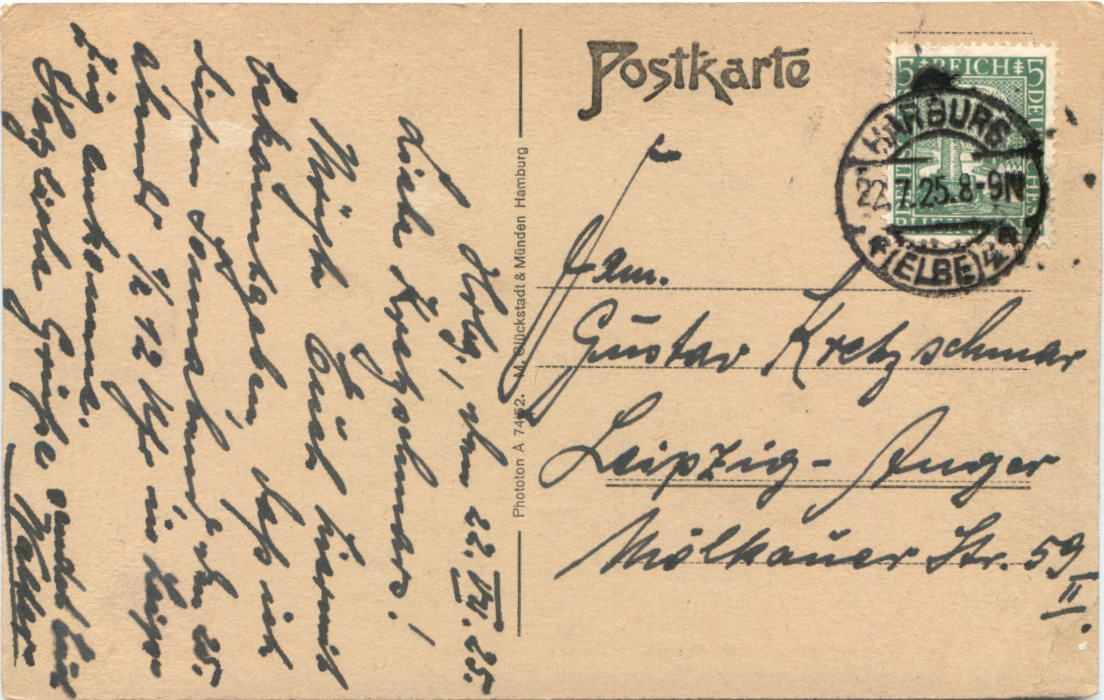 Postkarte
5 REICH 5
HARBURG
22.7.25.8-9N
(ELBE)
Fam.
Gustav Kretzschmar
Leipzig-Anger
Mölkauer Str. 59 II.
Phototon A 7452. M. Glückstadt & Münden Hamburg
Hbg., den 22. VII. 25.
Liebe Kretzschmars!
Möchte Euch hiermit
bekanntgeben, daß ich
diesen Sonnabend, den 25.
abends 1/2 12 Uhr in
ankomme.
Herzliche Grüße sendet
Walther